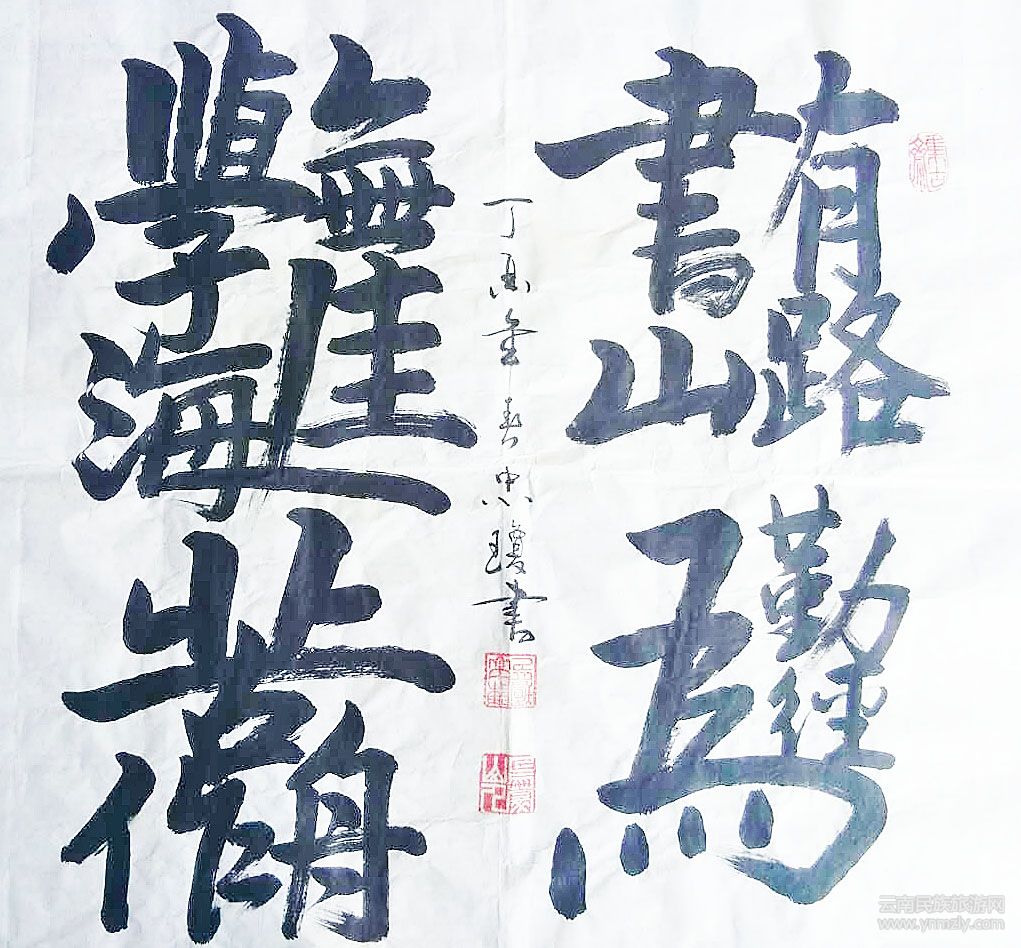 書山有路勤為徑
學海無涯苦作舟
丁春忠瓊書
云南民族旅游网
www.ynmzly.com